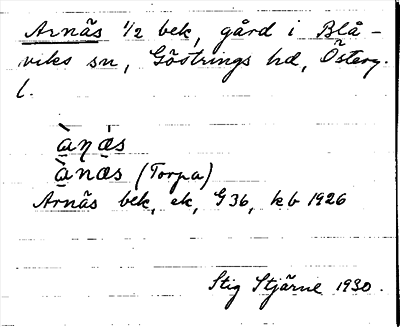 Arnäs 1/2 bek, gård i Blå-
viks sn, Göstrings hd, Österg.
l.
ànæs
ànæs (Torpa)
Arnäs bek, ek, G36, kb 1926
Stig Stjärne 1930.